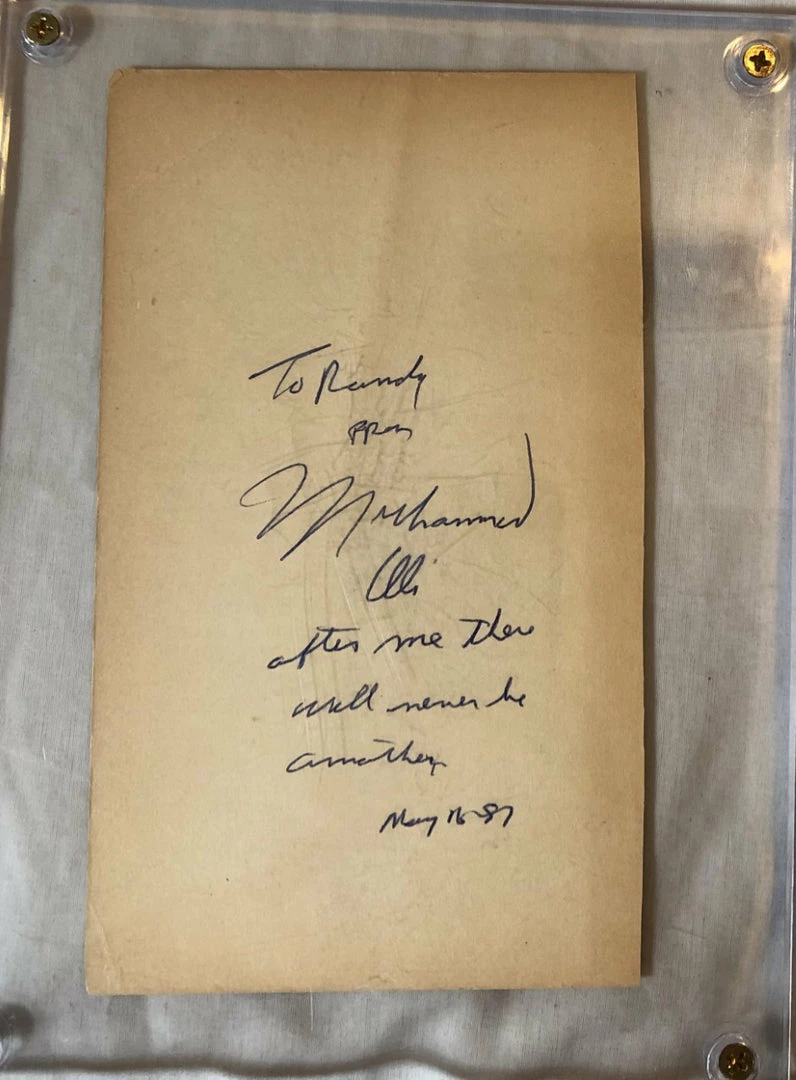 To Randy
From
Muhammad
Ali
after me there
will never be
another
May 16-87